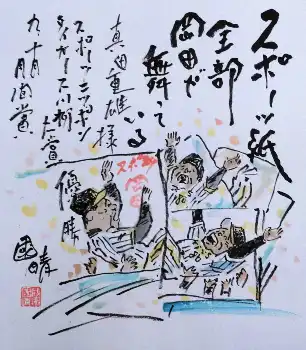 スポーツ紙
全部
岡田が
舞って
いる
真田重雄様
スポーツニッポン
タイガース川柳
大賞
九十月間賞
優勝
スポ